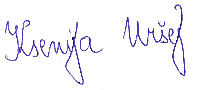 Ksenija Uršej